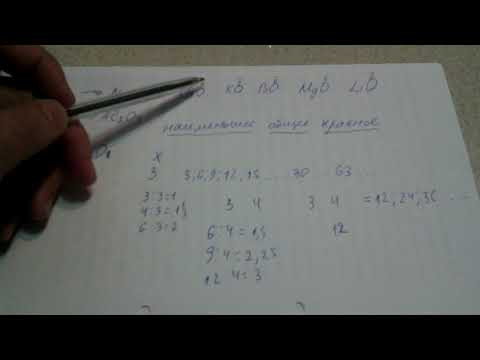 KO BO MgO LiO
Al2O3
наименьшее общее кратное
x
3 3,6,9,12,15 ... 30 63 ...
3:3=1 3 4 3 4 =12,24,36 ...
4:3=1,3
6:3=2 6:4=1,5 12
9:4=2,25
12 4=3